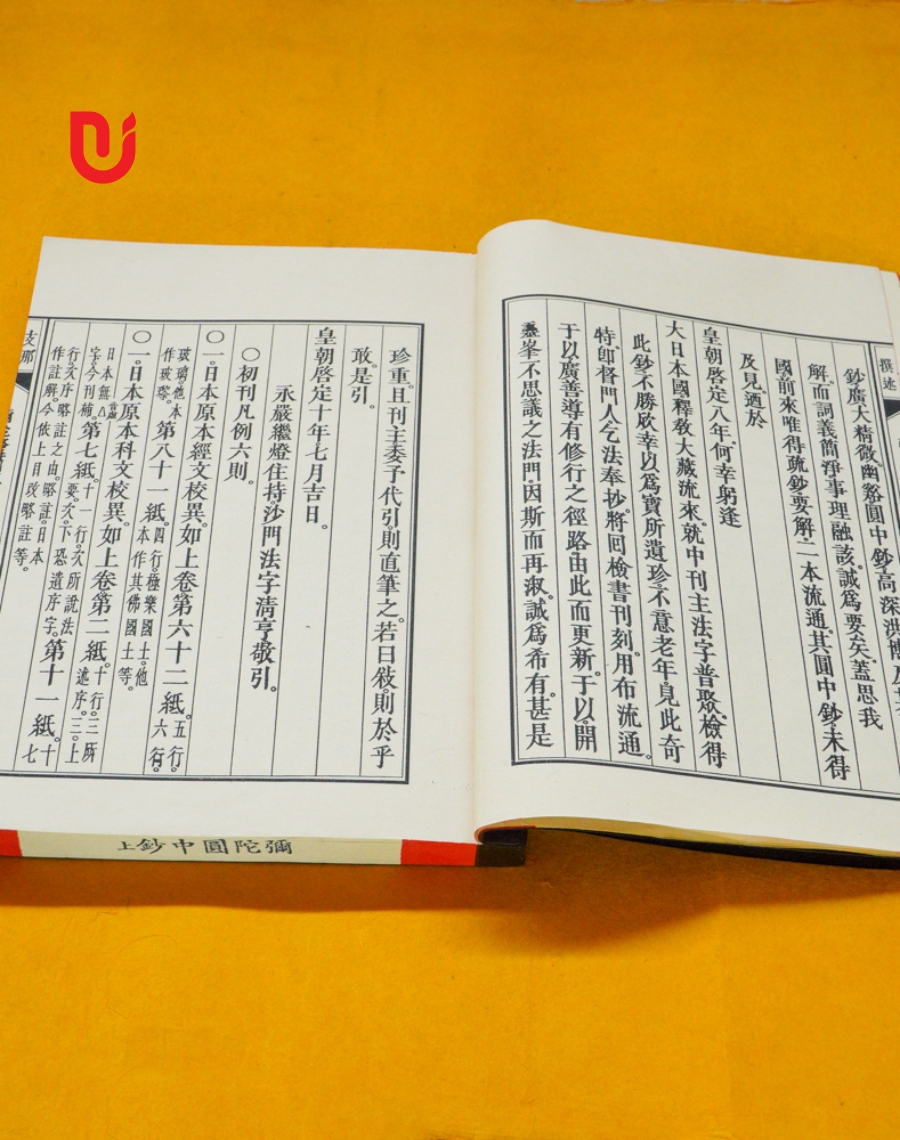 撰述
鈔廣大精微。幽谿圓中鈔。高深洪博。及
解。而詞義簡淨。事理融該。誠爲要矣。蓋思我
國前來唯得疏鈔。要解。二本流通。其圓中鈔。未得
及見。迺於
皇朝啓定八年。何幸躬逢
大日本國釋教大藏流來。就中刊主法字普聚。檢得
此鈔。不勝欣幸。以爲寶所遺珍。不意老年。見此奇
特。卽督門人。乞法奉抄。將回檢書刊刻。用布流通。
于以廣善導有修行之徑路。由此而更新。于以開
峯不思議之法門。因斯而再淑。誠爲希有。甚是
珍重。且刊主委予代引。則直筆之。若曰敘。則於乎
敢。是引。
皇朝啓定十年七月吉日。
永嚴繼燈住持沙門法字清亨敬引。
〇初刊凡例六則。
〇一。日本原本經文校異。如上卷第六十二紙。五行。
玻璃。他本作玻瓈。第八十一紙。四行。極樂國土。他本作其佛國土等。六行。
〇一。日本原本科文校異。如上卷第二紙。十行。三所
日本無△字。今刊補。第七紙。十一行。次所說法述序。三。上
行。次序略註之由。略要。次。下恐遺序字。第十一紙。十
作註解。今依上目改略註等。日本七
支那
彌陀圓中鈔上